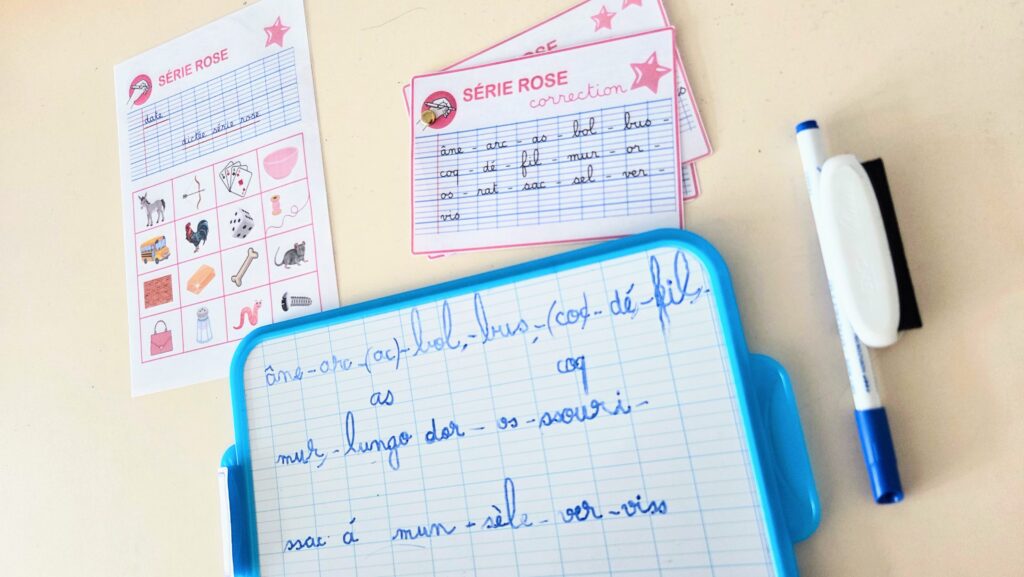 SÉRIE ROSE
date
dictée série rose
SÉRIE ROSE
SÉRIE ROSE
correction
âne - arc - as - bol - bus -
coq - dé - fil - mur - or -
os - rat - sac - sel - ver -
vis
âne - arc - (ac) - bol, - bus, - (coc) - dé, - fil, -
as coq
mur, - lungo dor - os - ssouri -
ssac á mun - sèle - ver - viss